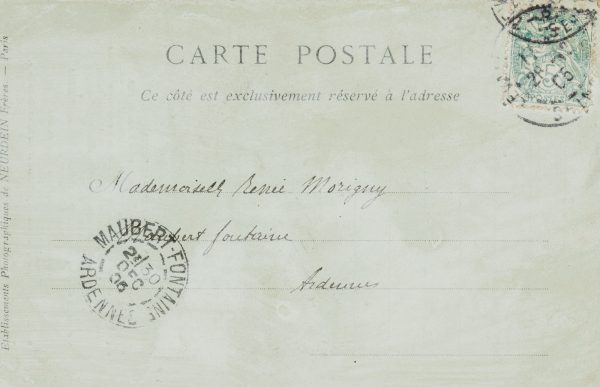 CARTE POSTALE
Ce côté est exclusivement réservé à l'adresse
Mademoiselle Renée Morigny
Maubert fontaine
Ardennes
MAUBERT-FONTAINE
30
DEC
ARDENNES
Etablissements Photographiques de NEURDEIN Frères. — Paris